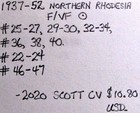 1937-52 NORTHERN RHODESIA
F/VF ⊙
#25-27, 29-30, 32-34,
#36, 38, 40.
#22-24
#46-47
-2020 SCOTT CV $10.80
USD